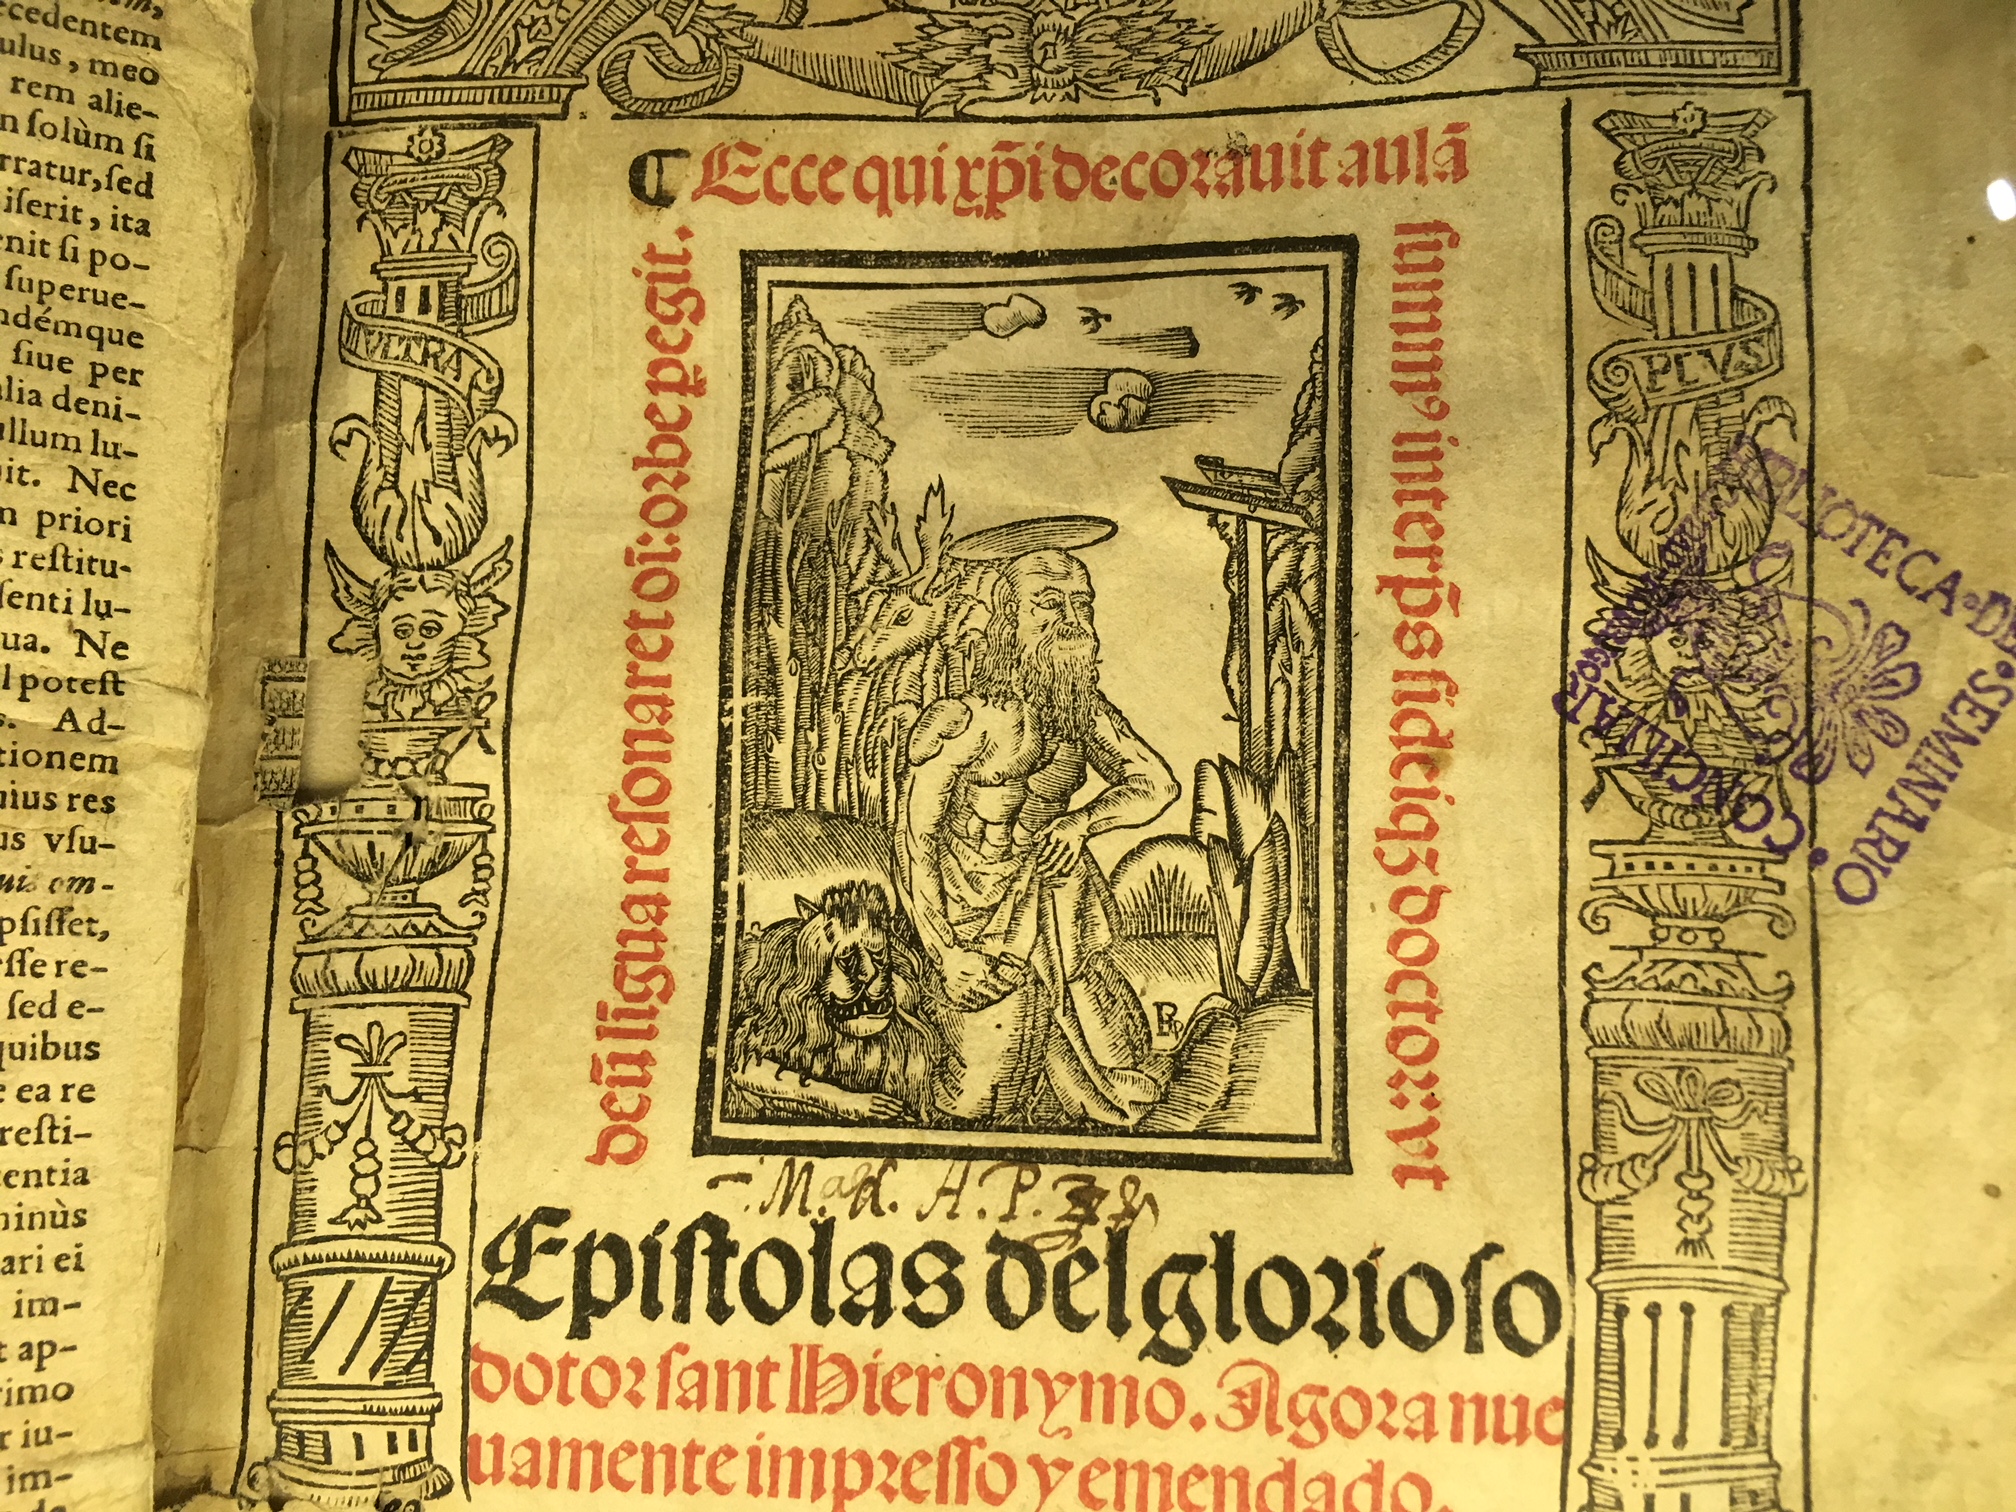 ecedentem
ulus, meo
rem alie-
n ſolùm ſi
rratur, ſed
iſerit, ita
enit ſi po-
ſuperue-
ndémque
ſiue per
alia deni-
ullum lu-
it. Nec
n priori
s reſtitu-
ſenti lu-
qua. Ne
l poteſt
s. Ad-
tionem
uius res
us vſu-
uis om-
pſiſſet,
eſſe re-
ſed e-
quibus
e ea re
reſti-
tentia
minùs
ari ei
im-
t ap-
rimo
r iu-
im-
¶ Ecce qui xp̄i decorauit aulā
ſummꝰ interp̄s ſidciqꝫ doctor: vt
deū ligua reſonaret oī: orbe pegit.
VLTRA
PLVS
BIBLIOTECA DEL SEMINARIO
CONCILIAR
M. A. P.
Epiſtolas del glorioſo
dotor ſant Hieronymo. Agora nue
uamente impreſſo y emendado.